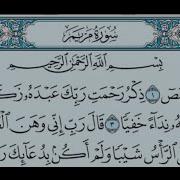 سُورَةُ مَرْيَمَ
بِسْمِ اللَّهِ الرَّحْمَٰنِ الرَّحِيمِ
ذِكْرُ رَحْمَتِ رَبِّكَ عَبْدَهُ زَكَ
نِدَاءً خَفِيًّا ٣ قَالَ رَبِّ إِنِّي وَهَنَ
الرَّأْسُ شَيْبًا وَلَمْ أَكُنْ بِدُعَائِكَ